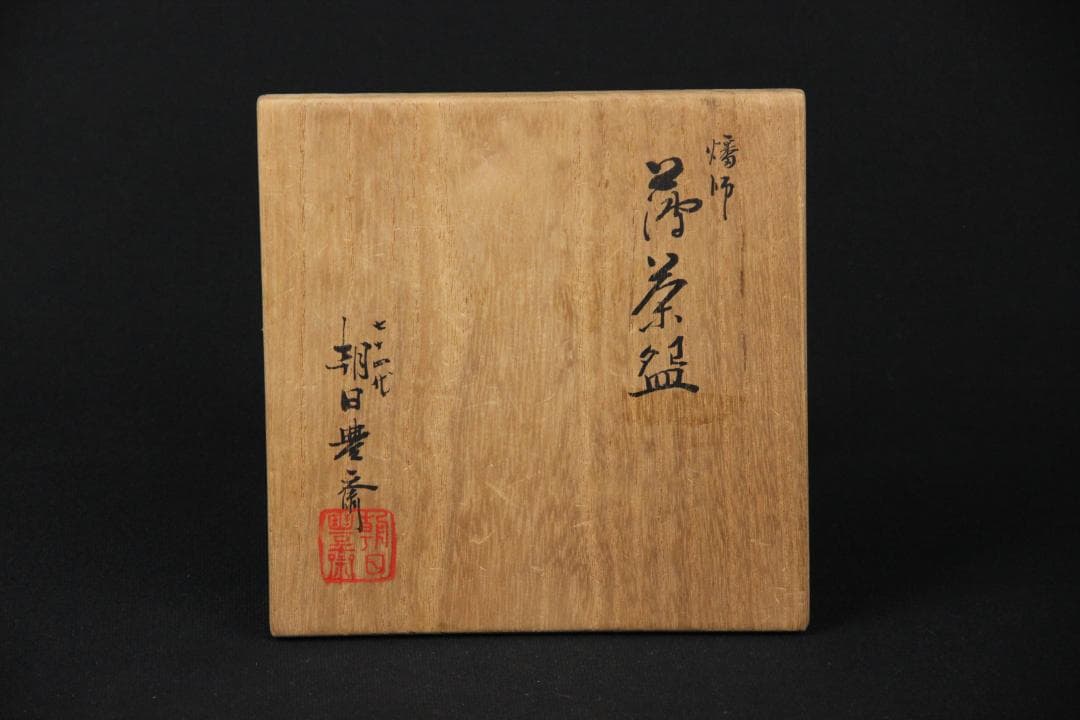 燔師
薄茶盌
十四代
朝日豊斎
朝日